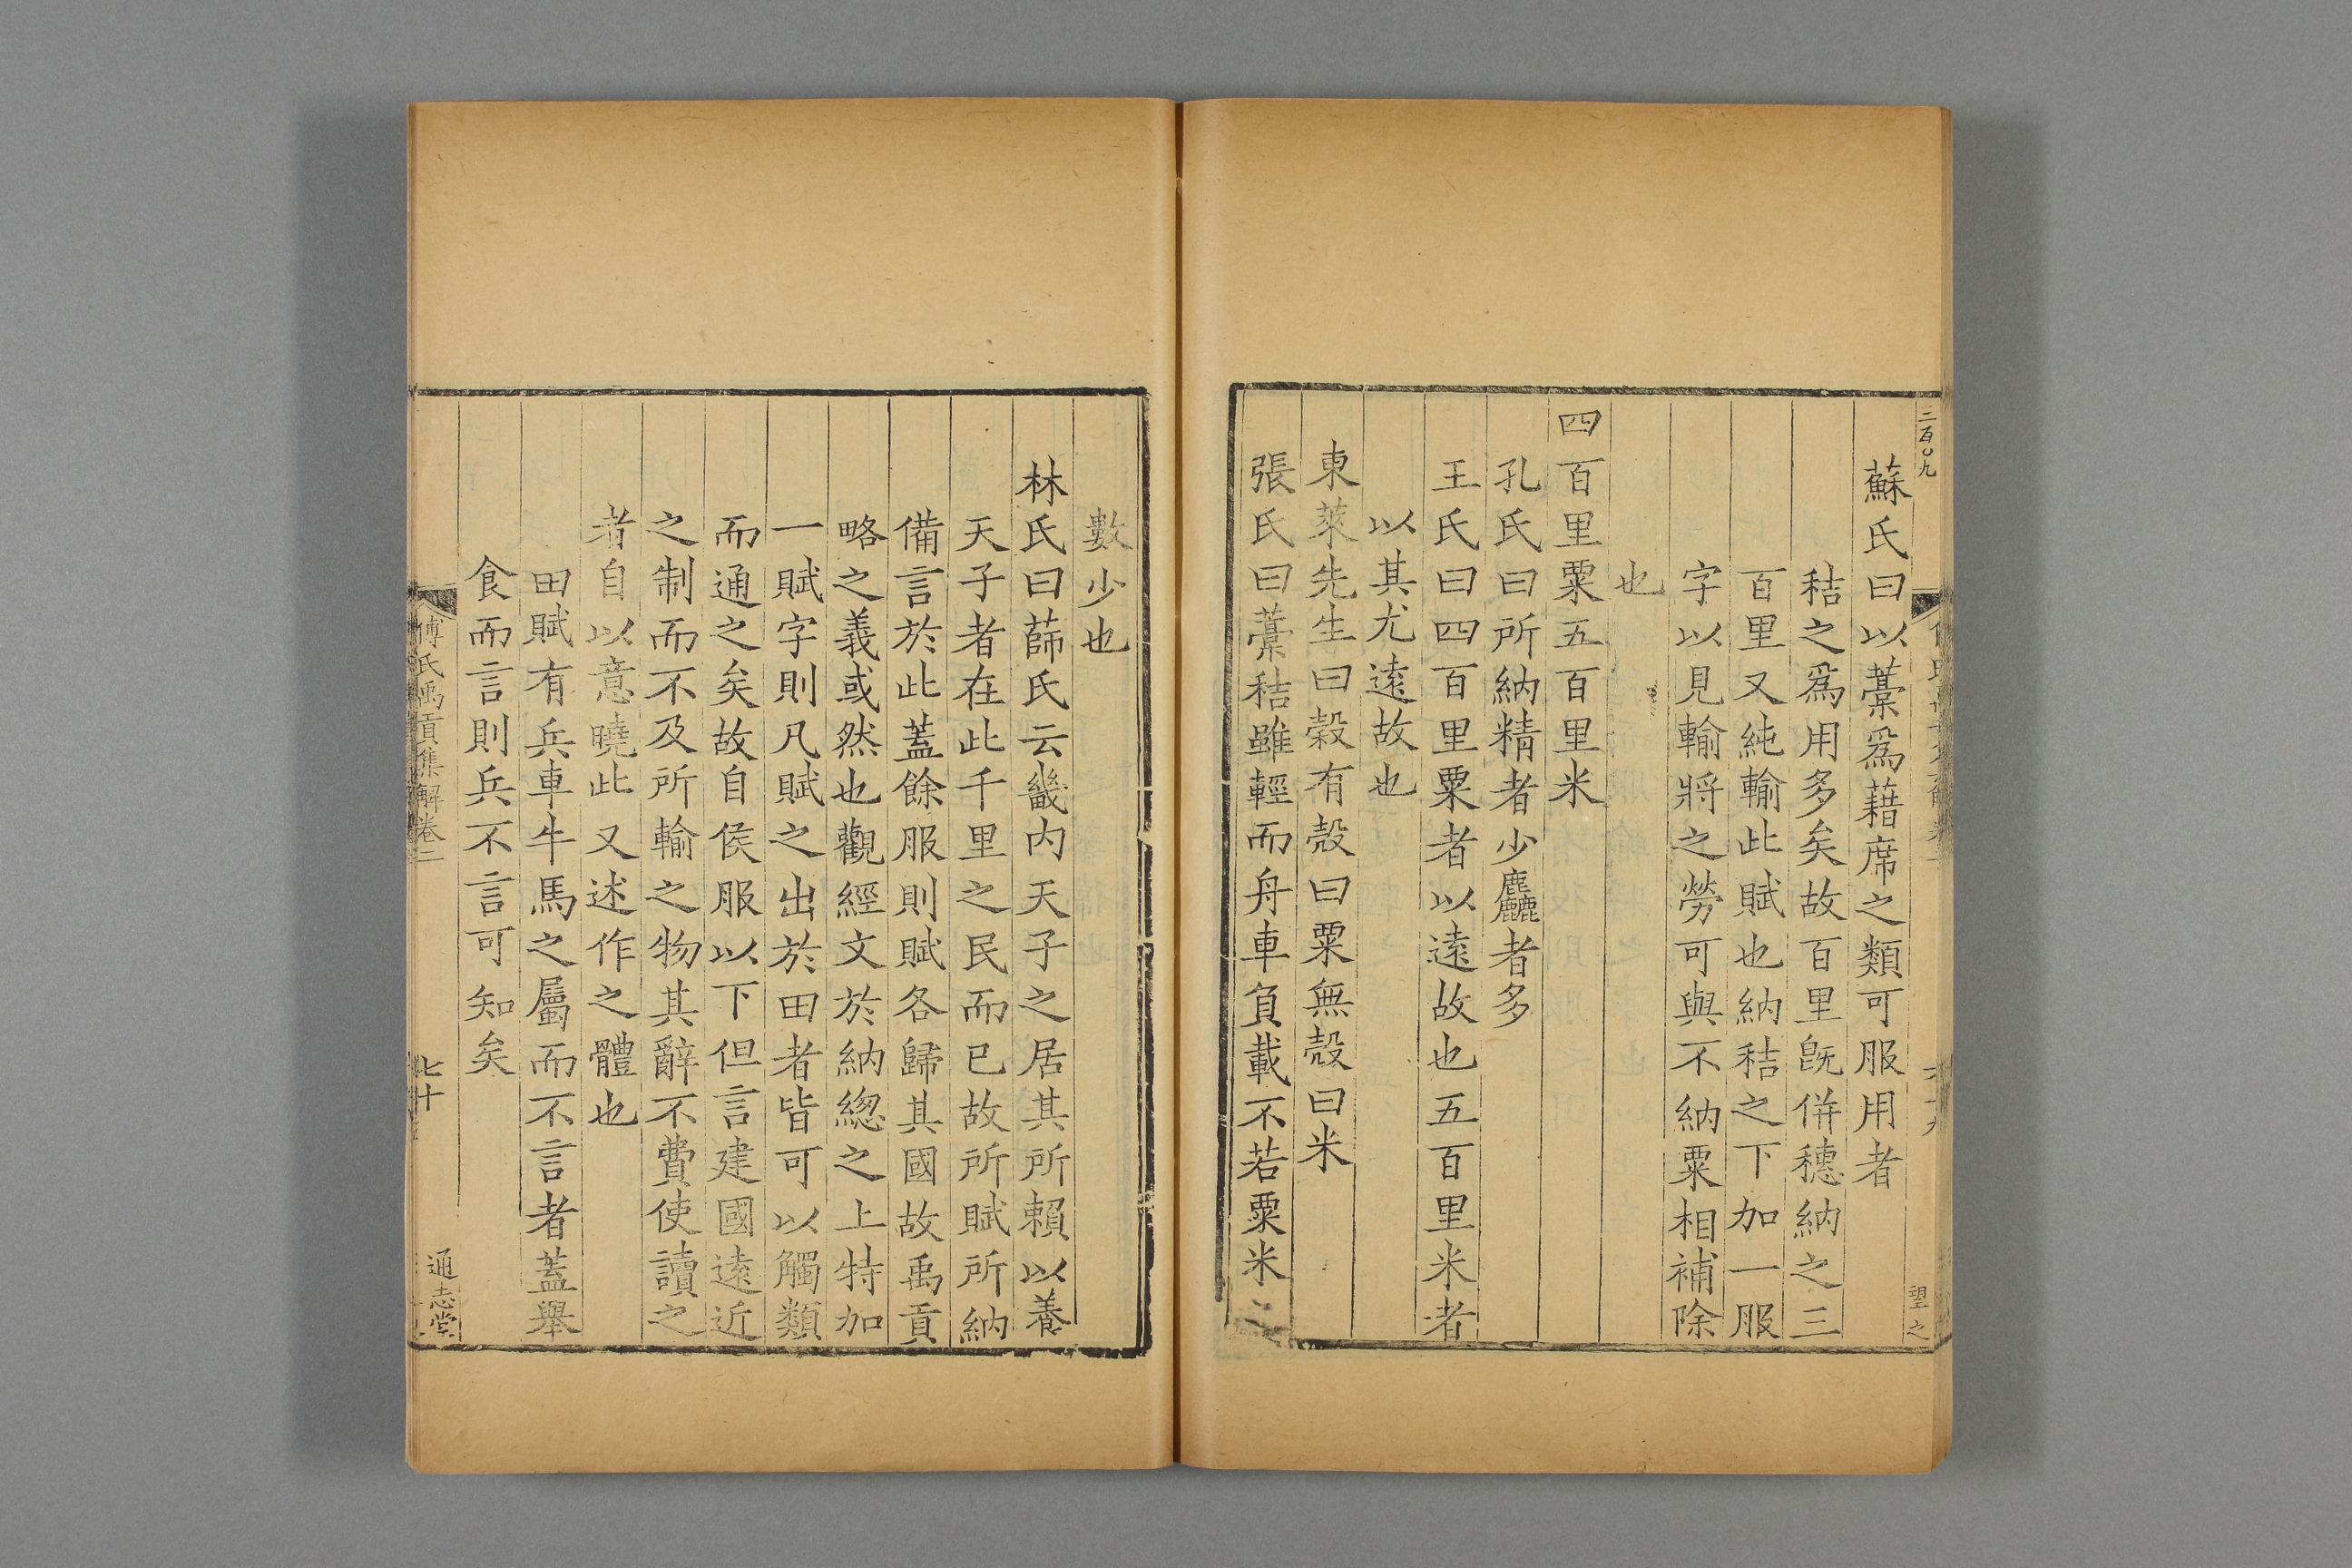 二百〇九
蘇氏曰以藁爲藉席之類可服用者
秸之爲用多矣故百里旣併穗納之三
百里又純輸此賦也納秸之下加一服
字以見輸將之勞可與不納粟相補除
也
四百里粟五百里米
孔氏曰所納精者少麤者多
王氏曰四百里粟者以遠故也五百里米者
以其尤遠故也
東萊先生曰穀有殼曰粟無殼曰米
張氏曰藁秸雖輕而舟車負載不若粟米之
望之
數少也
林氏曰薛氏云畿内天子之居其所賴以養
天子者在此千里之民而已故所賦所納
備言於此蓋餘服則賦各歸其國故禹貢
略之義或然也觀經文於納緫之上特加
一賦字則凡賦之出於田者皆可以觸類
而通之矣故自侯服以下但言建國遠近
之制而不及所輸之物其辭不費使讀之
者自以意曉此又述作之體也
田賦有兵車牛馬之屬而不言者蓋舉
食而言則兵不言可知矣
傅氏禹貢集解卷二
七十
通志堂